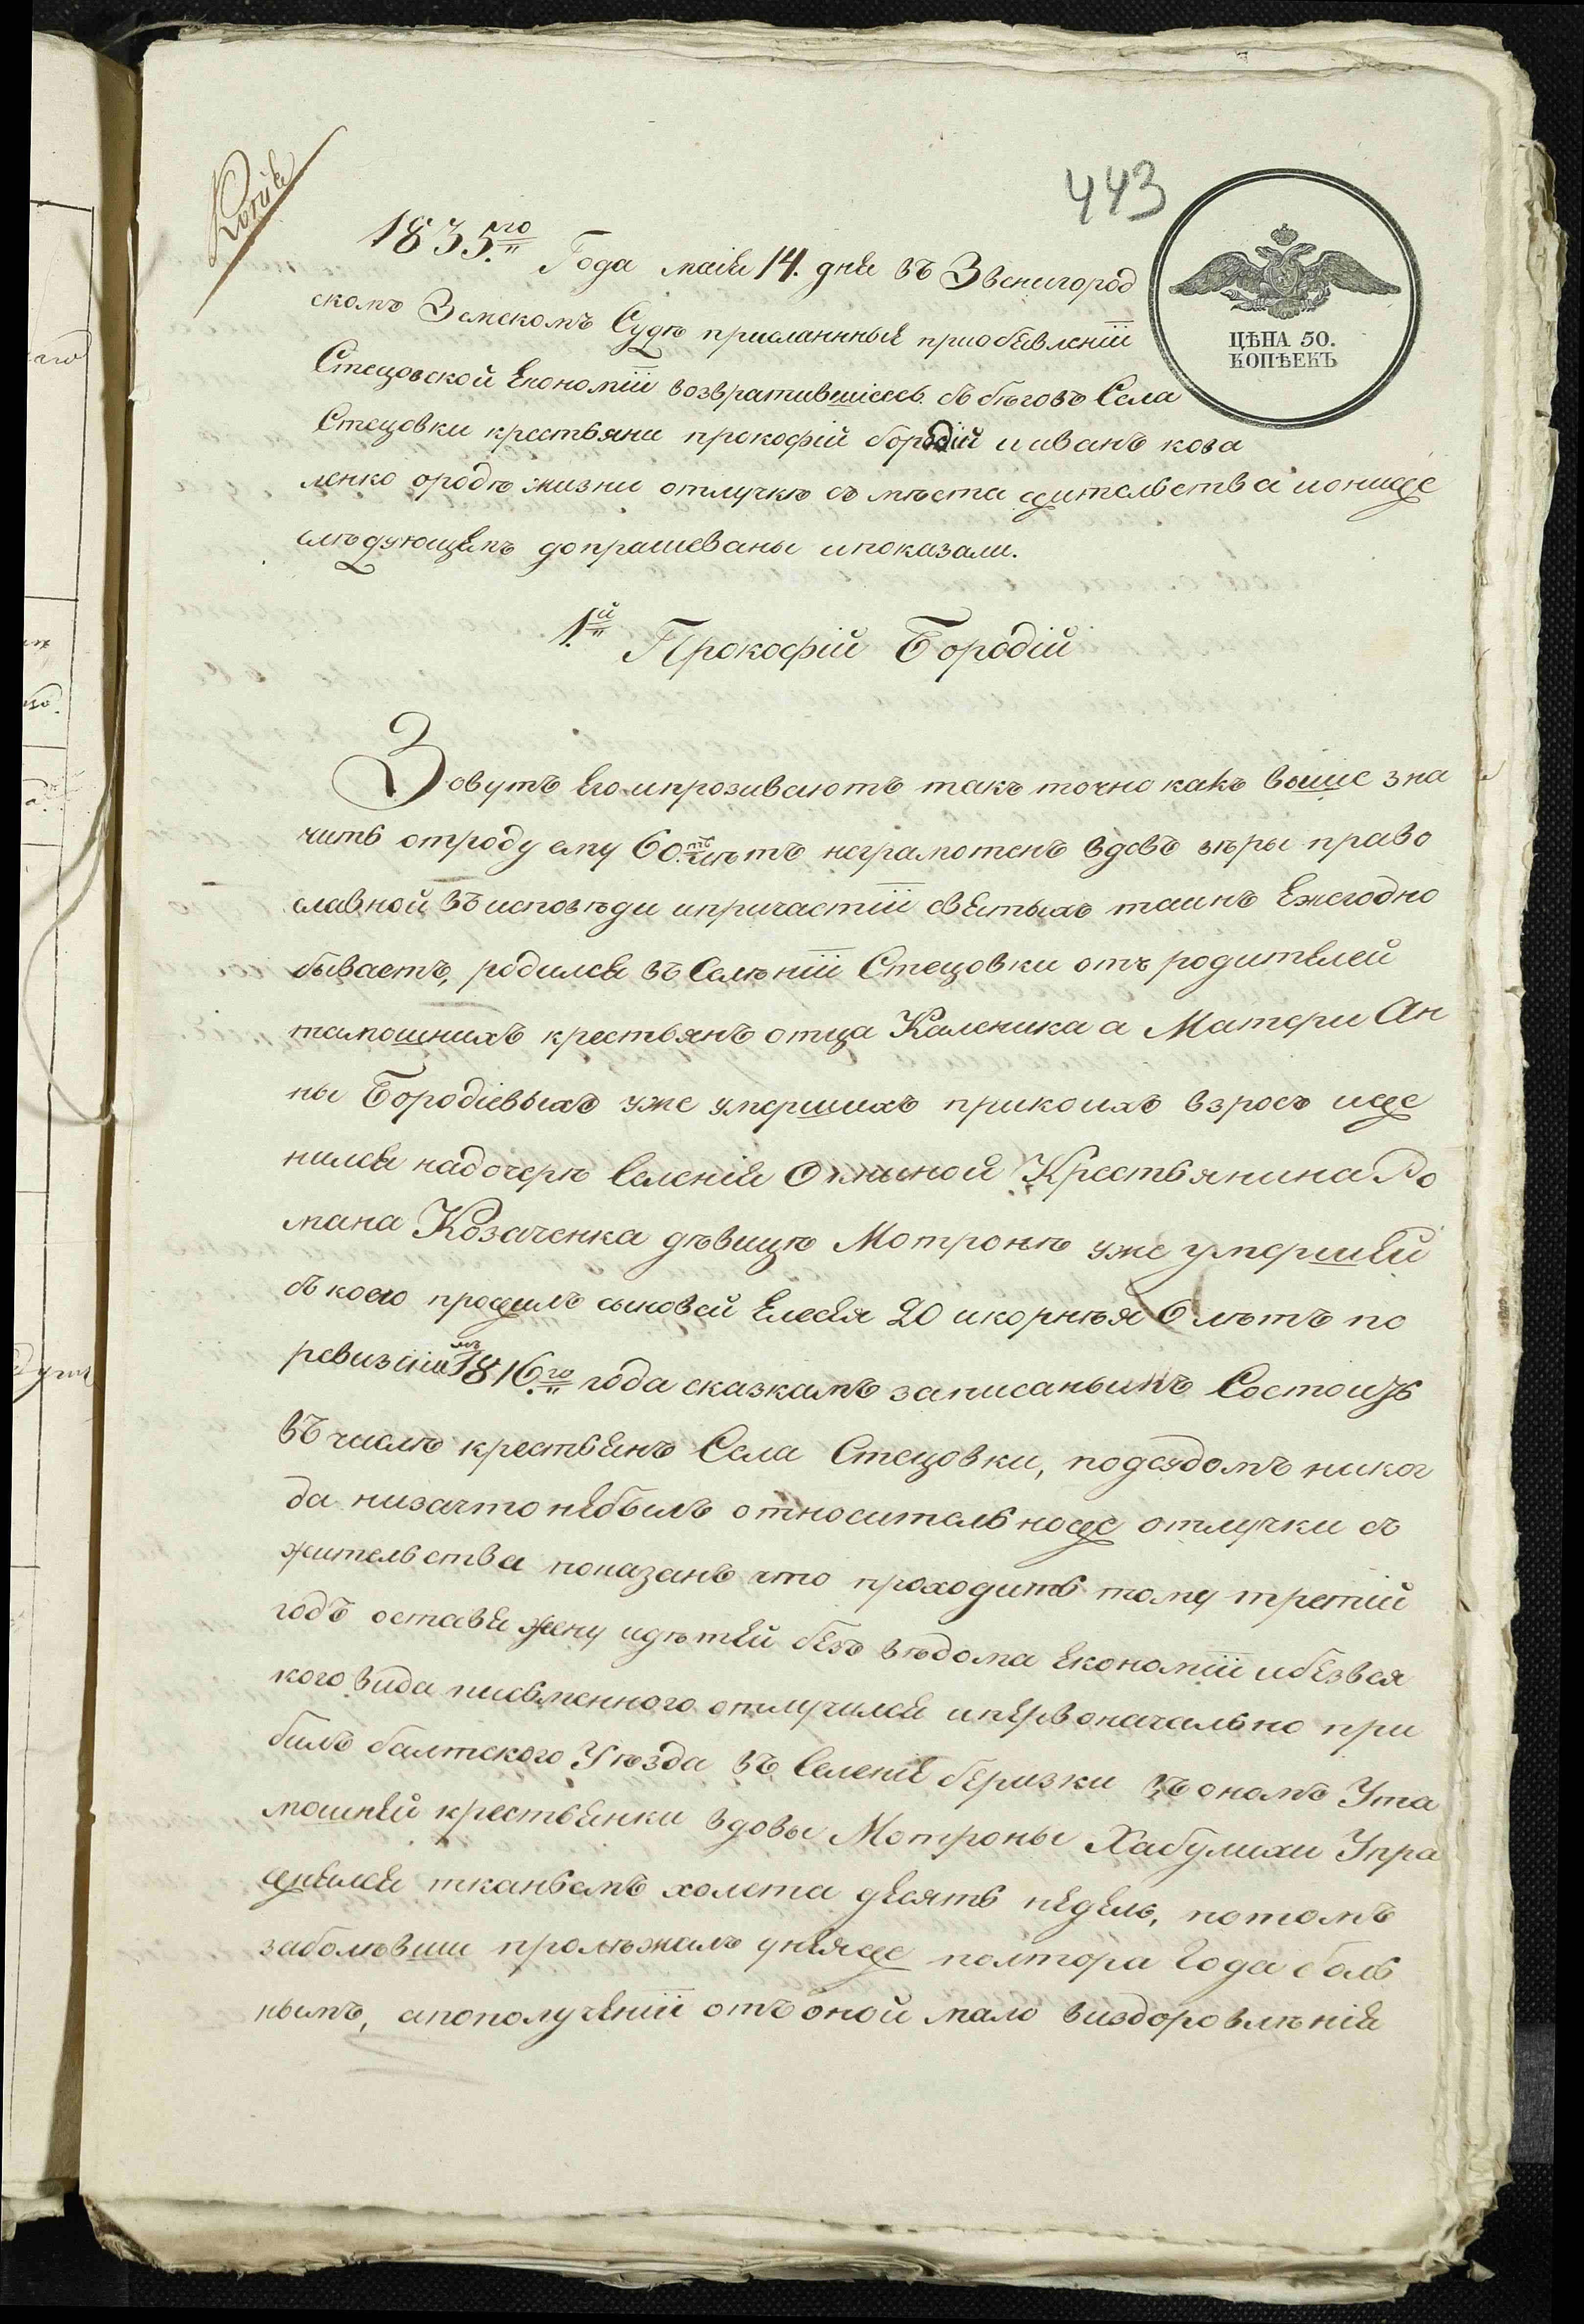 Копія
443
1835го Года маія 14. дня въ Звенигород
ЦѢНА 50.
КОПѢЕКЪ
скомъ Земскомъ Судѣ присланнныя приобявленіи
Стецовской Економіи возвратившіеся съ бѣговъ Села
Стецовки крестьяни прокофій бородій и иванъ кова
ленко ородѣ жизни отлучкѣ съ мѣста жительства и ониже
слѣдующемъ допрашеваны ипоказали.
1.й Прокофій Бородій
Зовутъ Его ипрозиваютъ такъ точно какъ выше зна
чить отроду ему 60.ть лѣтъ неграмотенъ вдовъ вѣры право
славной въ исповѣди ипричастіи святыхъ таинъ Ежегодно
бываетъ, родился въ Селѣніи Стецовки отъ родителей
тамошнихъ крестьянъ отца Каленика а Матери Ан
ны Бородіевыхъ уже умершихъ прикоихъ взросъ иже
нился надочерѣ Селенія Ольиной Крестьянина Ро
мана Козаченка дѣвицѣ Мотронѣ уже умершей
съ коею прожилъ сыновей Елесея 20 икорнѣя 6 лѣтъ по
ревизіи 1816го года сказкамъ записанымъ Состоитъ
въ числѣ крестьянъ Села Стецовки, подсудомъ никог
да низачто небылъ относительноже отлучки съ
жительства показанъ что проходитъ тому третій
годъ оставя жену идѣтей безъ вѣдома Економіи ибезвся
кого вида письменного отлучился ипервоначально при
билъ балтского Уѣзда въ Селеніе беризки въ ономъ Ута
мошней крестьянки вдовы Мотроны Хабулихи Упра
жнялся тканьемъ холста десять недель, потомъ
заболѣвши пролѣжалъ унеяже полтора Года боль
нымъ, апополученіи отъ оной мало виздоровлѣнія